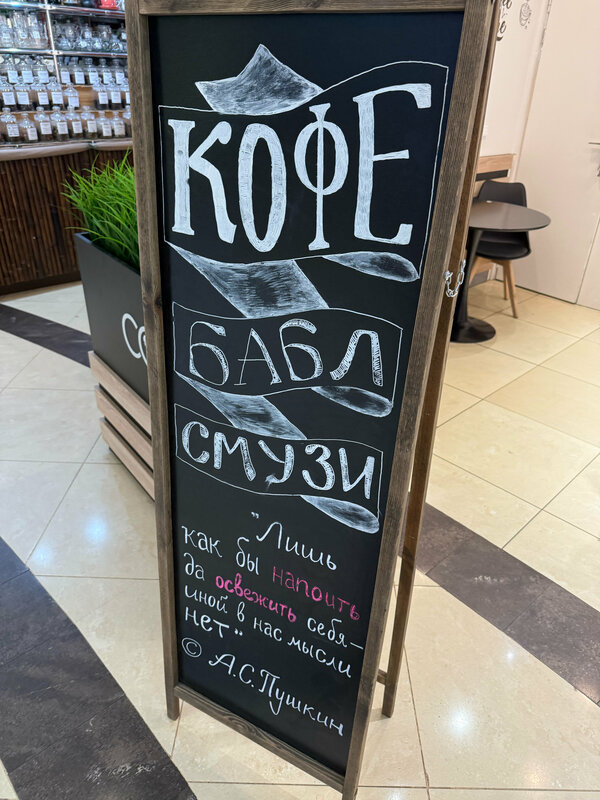 КОФЕ
БАБЛ
СМУЗИ
"Лишь
как бы напоить
да освежить себя-
иной в нас мысли
нет"
© А.С.Пушкин